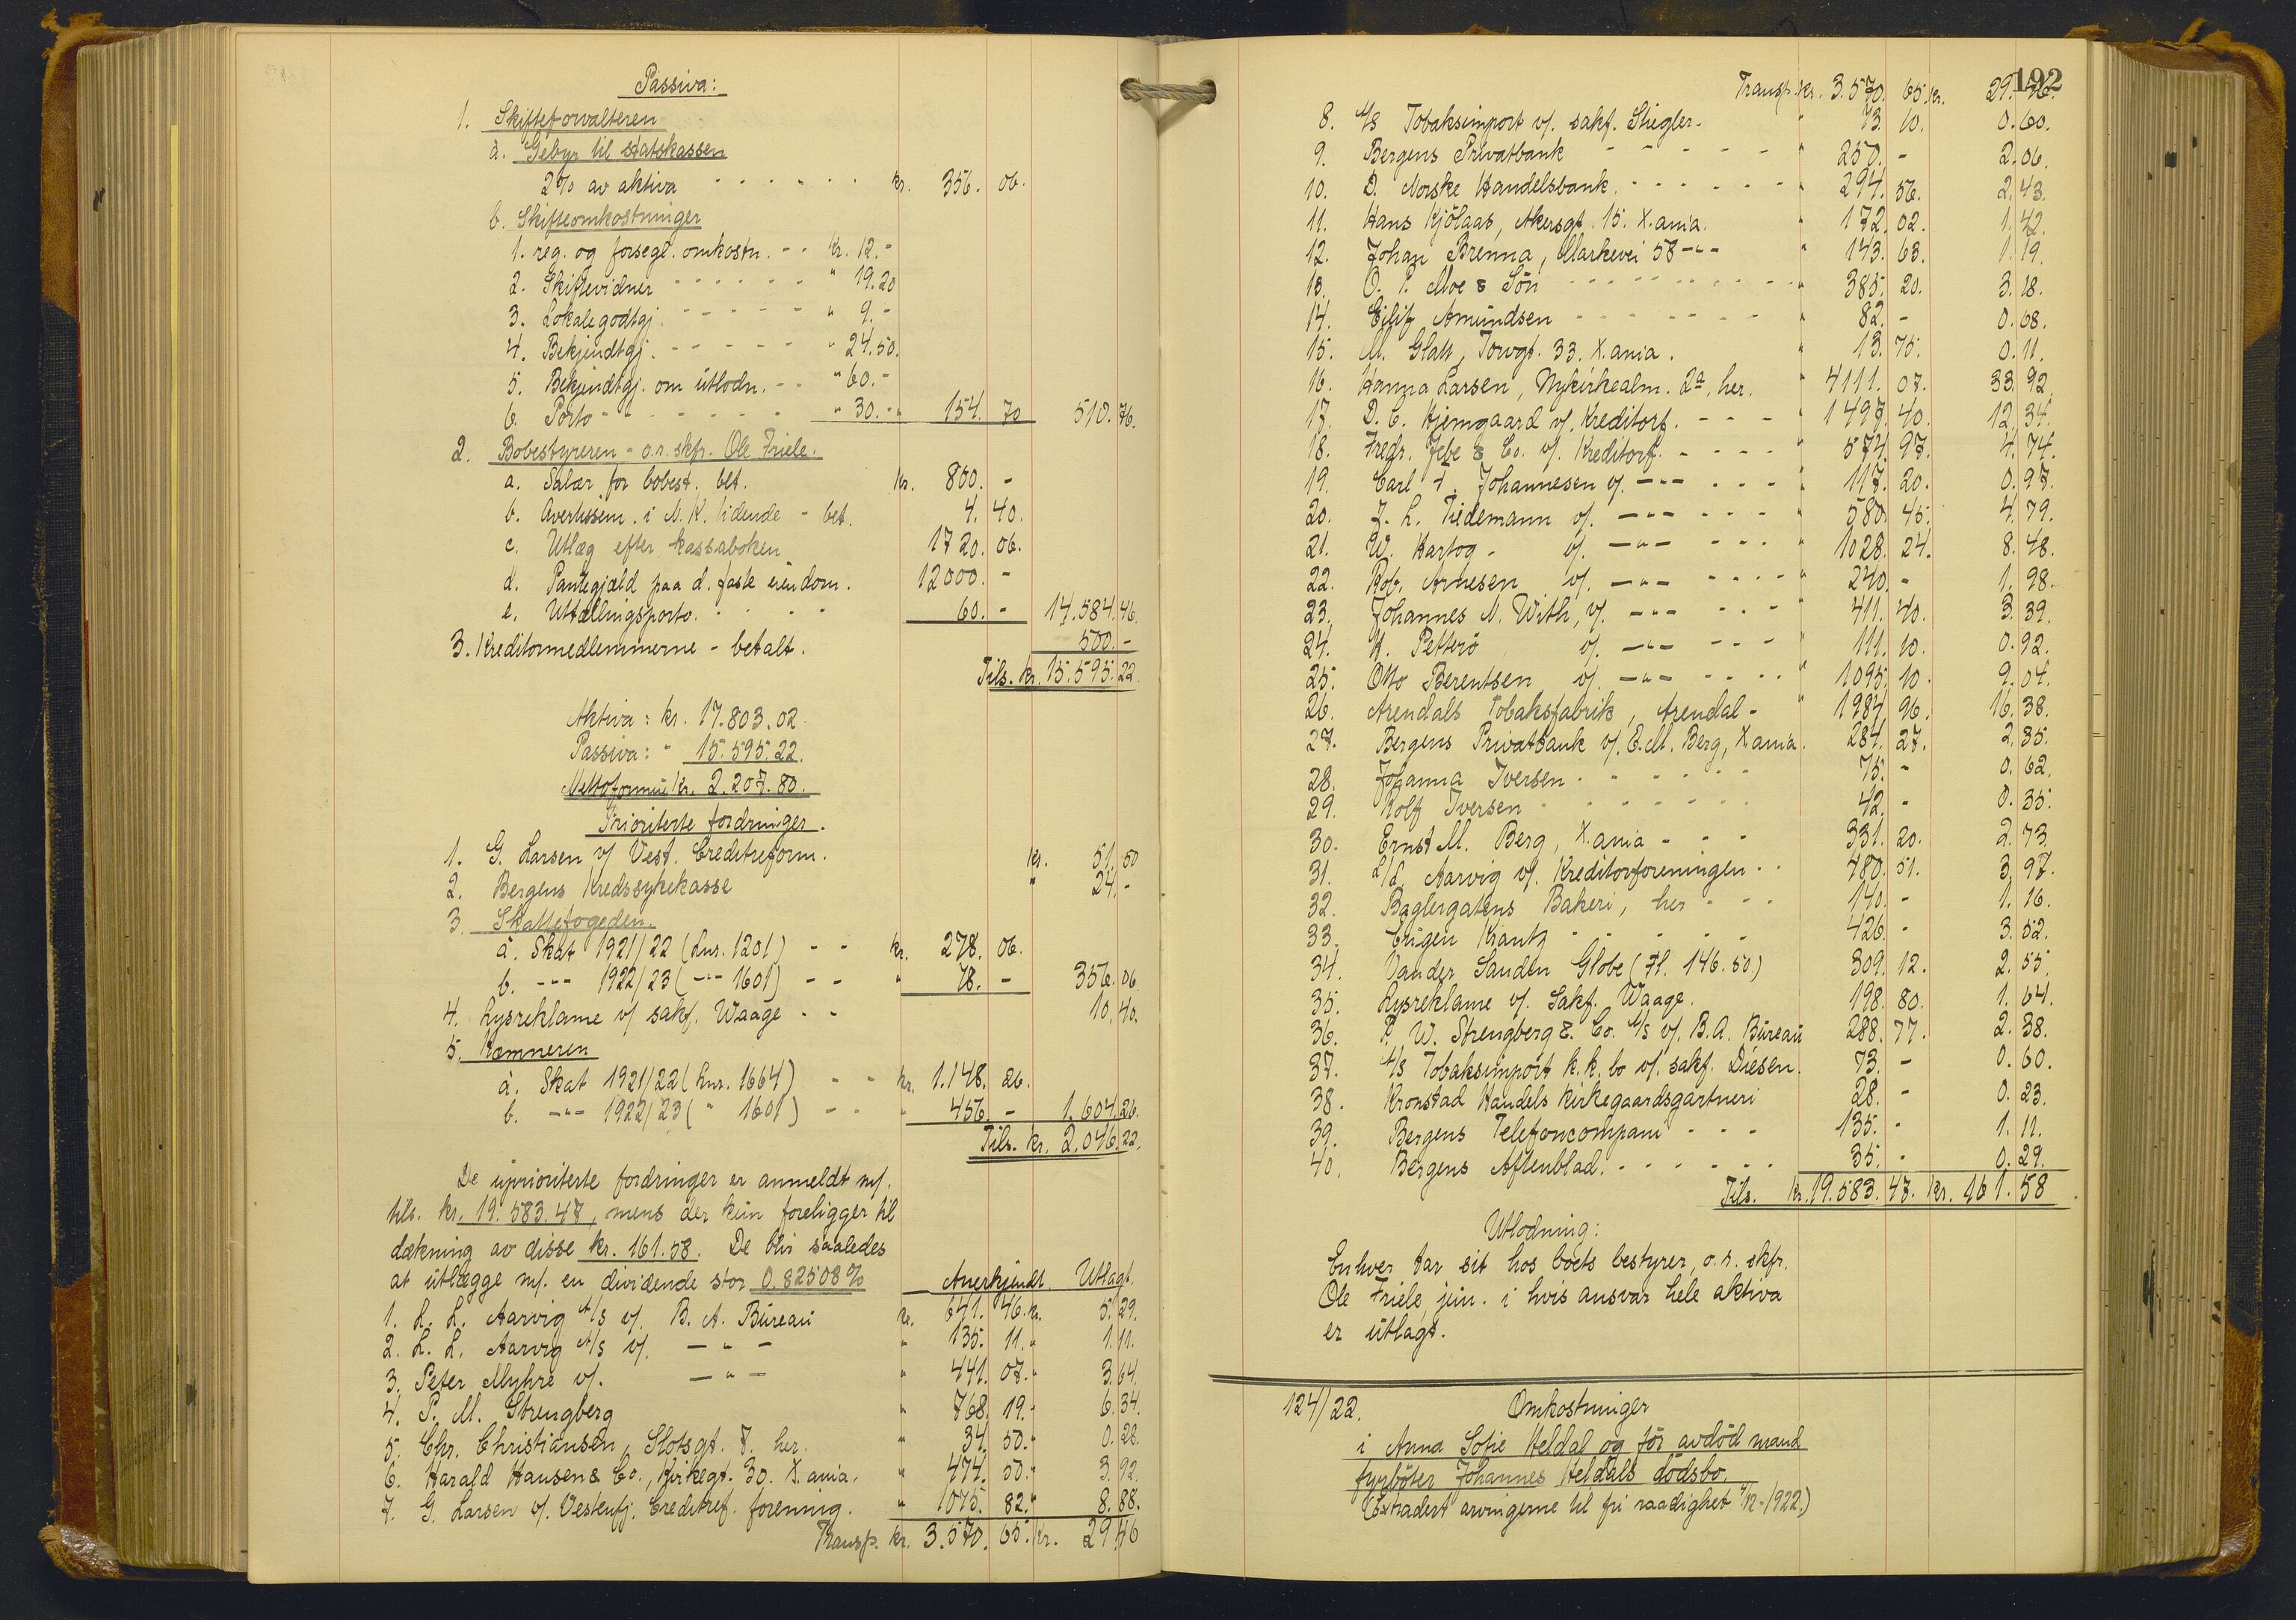 Passiva:
1. Skifteforvalteren
a. Gebyr til statskassen
2% av aktiva - - - - - - kr. 356. 06.
b. Skifteomkostninger
1. reg. og forsegl. omkostn. - - kr. 12.-
2. Skiftevidner - - - - - - " 19.20
3. Lokalegodtgj. - - - - - " 9.-
4. Bekjendtgj. - - - - - " 24.50.
5. Bekjendtgj. om utlodn. - - " 60.-
6. Porto - - - - - - - " 30.- " 154. 70 510. 76.
2. Bobestyreren - o.r. skfr. Ole Friele.
a. Salær for bobest. bet. kr. 800. -
b. Avertissem. i N. K. tidende - bet. 4. 40.
c. Utlæg efter kassaboken 1720. 06.
d. Pantegjæld paa d. faste eiendom. 12000. -
e. Uttællingsporto. - - - - 60. - 14.584. 46.
3. Kreditormedlemmerne - betalt. 500. -
Tils. kr. 15.595. 22.
Aktiva: kr. 17.803.02.
Passiva: " 15.595.22.
Nettoformue kr. 2.207.80.
Prioriterte fordringer.
1. G. Larsen v/ Vest. Creditreform. kr. 51. 50
2. Bergens Kredssykekasse " 24. -
3. Skattefogeden.
a. Skat 1921/22 (lnr. 1201) - - kr. 278. 06.
b. -"- 1922/23 (-"- 1601) - - " 78. - 356. 06.
4. Lysreklame v/ sakf. Waage - - 10. 40.
5. Kæmneren
a. Skat 1921/22 (lnr. 1664) - - kr. 1.148. 26.
b. -"- 1922/23 ( " 1601) - - " 456. - 1.604. 26.
Tils. kr. 2.046. 22.
De uprioriterte fordringer er anmeldt m/.
tils. kr. 19.583.47, mens der kun foreligger til
dækning av disse kr. 161.58. De blir saaledes
at utlægge m/. en dividende stor 0.82508%
Anerkjendt. Utlagt.
1. L. L. Aarvig A/s v/. B. A. Bureau kr. 641. 46. kr. 5. 29.
2. L. L. Aarvig A/s v/. - " - " 135. 11. " 1. 11.
3. Peter Myhre v/. - " - " 441. 07. " 3. 64.
4. P. M. Strengberg " 768. 19. " 6. 34.
5. Chr. Christiansen, Slotsgt. 7. her. " 34. 50. " 0. 28.
6. Harald Hansen & Co., Kirkegt. 30. X.ania. " 474. 50. " 3. 92.
7. G. Larsen v/. Vestenfj. Creditref. forening. " 1075. 82. " 8. 88.
Transp. kr. 3.570. 65. kr. 29. 46
192
Transp. kr. 3.570. 65. kr. 29. 46.
8. A/s Tobaksimport v/. sakf. Stiegler - " 73. 10. 0. 60.
9. Bergens Privatbank - - - - - " 250. - 2. 06.
10. D. Norske Handelsbank. - - - - - - " 294. 56. 2. 43.
11. Hans Kjölaas, Akersgt. 15. X.ania. " 172. 02. 1. 42.
12. Johan Brenna, Markevei 58 -"- " 143. 63. 1. 19.
13. O. P. Moe & Sön - - - - - - - - " 385. 20. 3. 18.
14. Eilif Amundsen - - - - - - - " 82. - 0. 68.
15. M. Glatt, Torvgt. 33. X.ania. " 13. 75. 0. 11.
16. Hanna Larsen, Nykirkealm. 2a, her. " 4111. 07. 33. 92.
17. D. C. Hjemgaard v/. Kreditorf. - - - - " 1497. 40. 12. 34.
18. Fredr. Jebe & Co. v/. Kreditorf. - - - - " 574. 97. 4. 74.
19. Carl F. Johannesen v/. -"- - - - " 117. 20. 0. 97.
20. J. L. Tiedemann v/. -"- - - - - " 580. 45. 4. 79.
21. W. Hartog - v/. -"- - - - - " 1028. 24. 8. 48.
22. Rob. Arnesen v/. -"- - - - - " 240. - 1. 98.
23. Johannes N. With, v/. -"- - - - " 411. 40. 3. 39.
24. K. Petterö v/. -"- - - - 111. 10. 0. 92.
25. Otto Berentsen v/. -"- - - - - " 1095. 10. 9. 04.
26. Arendals Tobaksfabrik, Arendal - " 1984. 96. 16. 38.
27. Bergens Privatbank v/. E. M. Berg, X.ania. 284. 27. 2. 35.
28. Johanna Iversen - - - - - - 75. - 0. 62.
29. Rolf Iversen - - - - - - - 42. - 0. 35.
30. Ernst M. Berg, X.ania - - - 331. 20. 2. 73.
31. L/L. Aarvig v/. Kreditorforeningen - - 480. 51. 3. 97.
32. Baglergatens Bakeri, her - - - 140. - 1. 16.
33. Eugen Krantz - - - - - - 426. - 3. 52.
34. Vander Sanden Globe (Fl. 146.50.) 309. 12. 2. 55.
35. Lysreklame v/. Sakf. Waage. 198. 80. 1. 64.
36. P. W. Strengberg & Co. A/s v/. B. A. Bureau 288. 77. 2. 38.
37. A/s Tobaksimport k.k. bo v/. sakf. Diesen. 73. - 0. 60.
38. Kronstad Handels kirkegaardsgartneri 28. - 0. 23.
39. Bergens Telefoncompani - - - 135. - 1. 11.
40. Bergens Aftenblad. - - - - - - 35. - 0. 29.
Tils. kr. 19.583. 47. kr. 161. 58
Utlodning:
Enhver tar sit hos boets bestyrer, o.r. skfr.
Ole Friele, jun. i hvis ansvar hele aktiva
er utlagt.
124/22. Omkostninger
i Anna Sofie Heldal og för avdöd mand
fyrböter Johannes Heldals dödsbo.
(Extradert arvingerne til fri raadighet /12-1922.)